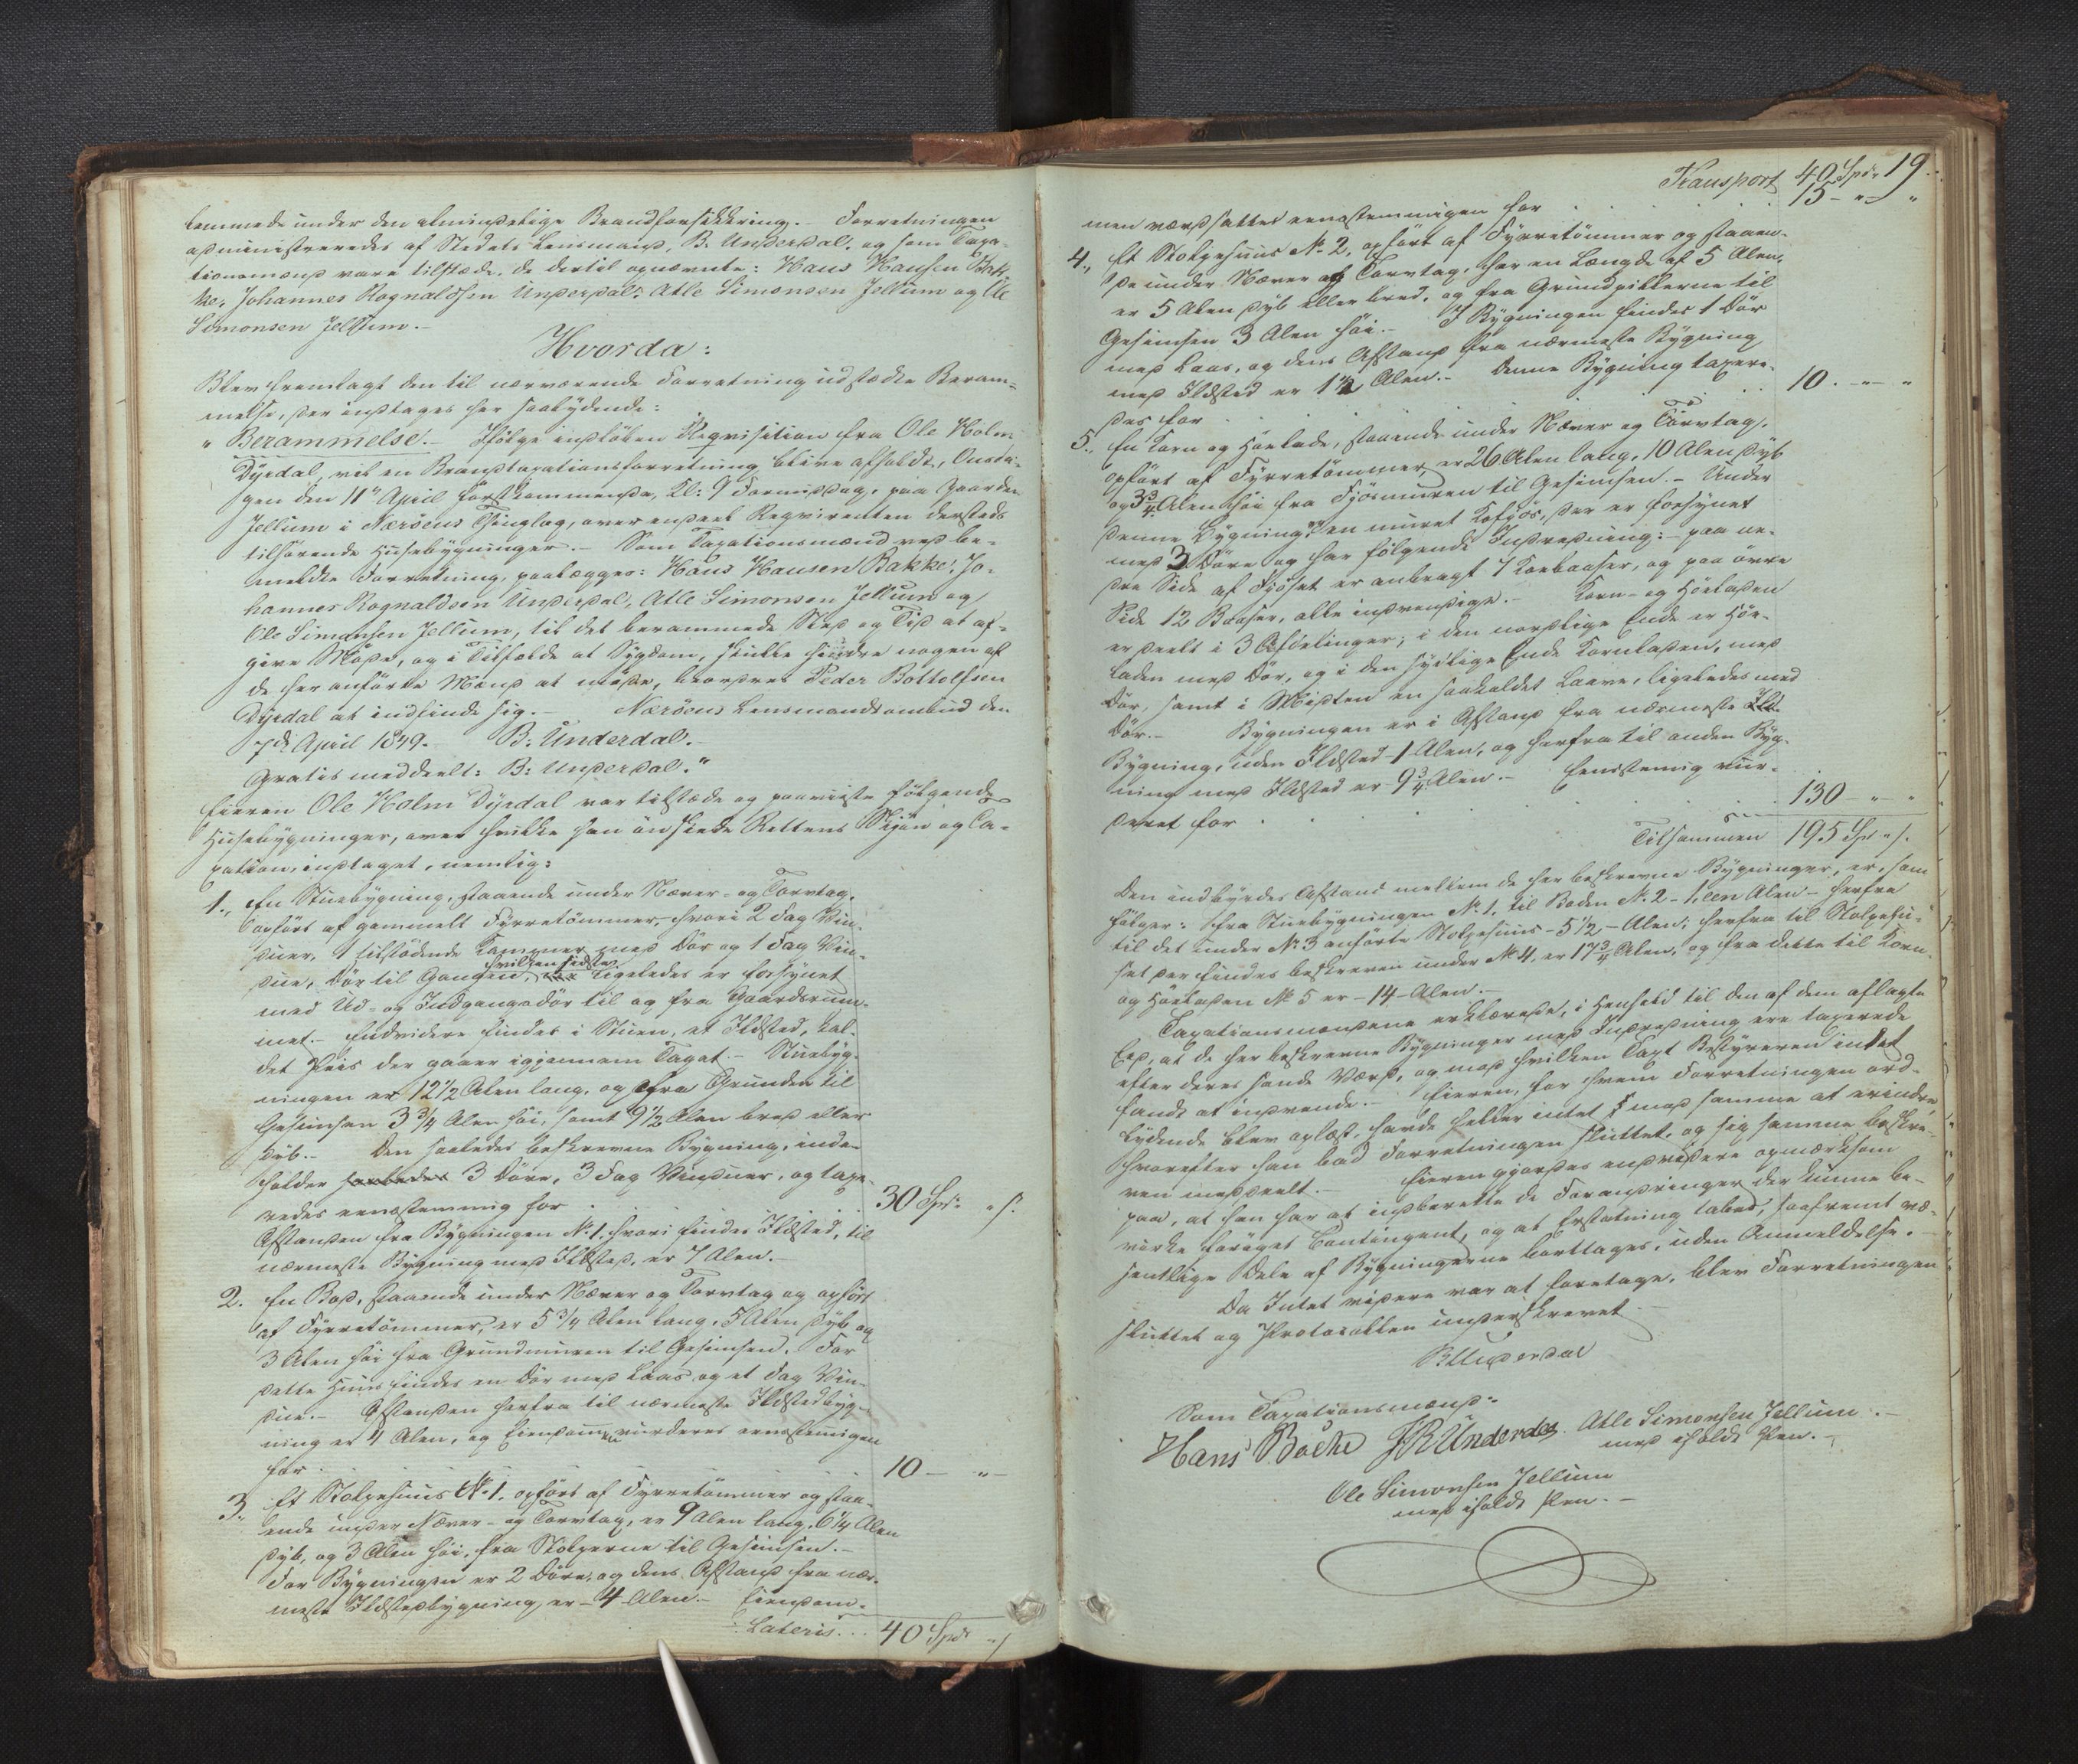 kommede under den almindelige Brandforsikkring. Forretningen
administreredes af Stedets Lensmand, B. Underdal, og som Taxa-
tionsmænd vare tilstæde, de dertil opnævnte: Hans Hansen Bak-
ke, Johannes Rognaldsen Underdal, Atle Simonsen Jellum og Ole
Simonsen Jellum.-
Hvorda:
Blev fremlagt den til nærværende Forretning udstædte Beram-
melse, der indtages her saalydende:
"Berammelse.- Ifølge indløben Reqvisition fra Ole Holm
Dyrdal, vil en Brandtaxationsforretning blive afholdt, Onsda-
gen den 11te April førstkommende, Kl: 9 Formiddag, paa Gaarden
Jellum i Nærøens Thinglag, over endeel Reqvirenten dersteds
tilhørende Husebygninger.- Som Taxationsmænd ved be-
meldte Forretning, paalægges: Hans Hansen Bakke, Jo-
hannes Rognaldsen Underdal, Atle Simonsen Jellum og
Ole Simonsen Jellum, til det berammede Sted og Tid at af-
give Møde, og i Tilfælde at Sygdom, skulle hindre nogen af
de her anførte Mænd at møde, beordres Peder Bottolfsen
Dyrdal at indfinde sig.- Nærøens Lensmandsombud den
7de April 1849. B: Underdal.-
Gratis meddeelt: B: Underdal."
Eieren Ole Holm Dyrdal var tilstæde og paaviiste følgende
Husebygninger, over hvilke han ønskede Rettens Skjøn og Ta-
xation, indtaget, nemlig:
1., En Stuebygning, staaende under Næver- og Torvtag,
opført af gammelt Fyrretømmer, hvori 2 Fag Vin-
duer, 1 tilstødende Kammer med Dør og 1 Fag Vin-
due, Dør til Gangen, hvilken sidste ligeledes er forsynet
med Ud- og Indgangsdør til og fra Gaardsrum-
met.- Endvidere findes i Stuen, et Ildsted, kal-
det Peis der gaaer igjennem Taget.- Stuebyg-
ningen er 12 1/2 Alen lang, og fra Grunden til
Gesimsen 3 3/4 Alen høi, samt 9 1/2 Alen bred eller
dyb.- Den saaledes beskrevne Bygning, inde-
holder saaledes 3 Døre, 3 Fag Vinduer, og taxe-
redes eenstemmig for . . . 30 Spd. " s.
Afstanden fra Bygningen No 1. hvori findes Ildsted, til
nærmeste Bygning med Ildsted, er 7 Alen.-
2. En Bod, staaende under Næver og Torvtag og opført
af Fyrretømmer, er 5 3/4 Alen lang, 5 Alen dyb og
3 Alen høi fra Grundmuren til Gesimsen. For
dette Huus findes en Dør med Laas og et Fag Vin-
due.- Afstanden herfra til nærmeste Ildstedbyg-
ning er 4 Alen, og Eiendommen vurderes eenstemmigen
for . . . 10 - " -
3., Et Stolpehuus No 1. opført af Fyrretømmer og staa-
ende under Næver- og Torvtag, er 9 Alen lang, 6 1/4 Alen
dyb, og 3 Alen høi, fra Stolperne til Gesimsen.-
For Bygningen er 2 Døre, og dens Afstand fra nær-
meste Ildstedbygning, er - 4 - Alen.- Eiendom-
Lateris. . . 40 Spd " s
19.
Transport 40 Spd "
men værdsattes eenstemmigen for . . . 15 - " - "
4., Et Stolpehuus No 2, opført af Fyrretømmer og staaen-
de under Næver og Torvtag, har en Længde af 5 Alen,
er 5 Alen dyb eller bred, og fra Grundpillerne til
Gesimsen 3 Alen høi.- I Bygningen findes 1 Dør
med Laas, og dens Afstand fra nærmeste Bygning
med Ildsted er 1 1/2 Alen.- Denne Bygning taxere-
des for . . . 10. - " - "
5., En Korn og Høelade, staaende under Næver og Torvtag,
opført af Fyrretømmer, er 26 Alen lang, 10 Alen dyb
og 3 3/4 Alen høi fra Fjøsmuren til Gesimsen.- Under
denne Bygning er en muret Kofjøs, der er forsynet
med 3 Døre og har følgende Indredning: - paa ne-
dre Side af Fjøset er anbragt 7 Koebaaser, og paa øvre
Side 12 Baaser, alle indvendige.- Korn- og Høeladen
er deelt i 3 Afdelinger; i den nordlige Ende er Høe-
laden med Dør, og i den sydlige Ende Kornladen, med
Dør, samt i Midten en saakaldet Laave, ligeledes med
Dør.- Bygningen er i Afstand fra nærmeste
Bygning, uden Ildsted 1 Alen, og herfra til anden Byg-
ning med Ildsted er 9 3/4 Alen.- Eenstemmig vur-
deret for . . . 130 - " - "
Tilsammen 195 Sp " s.
Den indbyrdes Afstand mellem de her beskrevne Bygninger, er, som
følger: Fra Stuebygningen No 1. til Boden No 2 - 1. een Alen - herfra
til det under No 3 anførte Stolpehuus - 5 1/2 - Alen; herfra til Stolpehu-
set der findes beskreven under No 4. er 17 3/4 Alen, og fra dette til Korn-
og Høeladen No 5 er - 14 - Alen.-
Taxationsmændene erklærede, i Henhold til den af dem aflagte
Eed, at de her beskrevne Bygninger med Indredning ere taxerede
efter deres sande Værd, og mod hvilken Taxt Bestyreren intet
fandt at indvende.- Eieren, for hvem Forretningen ord-
lydende blev oplæst, havde heller intet mod samme at erindre,
hvorefter han bad Forretningen sluttet, og sig samme beskre-
ven meddeelt.- Eieren gjordes endvidere opmærksom
paa, at han har at indberette de Forandringer der kunne be-
virke forøget Contingent, og at Erstatning tabes, saafremt væ-
sentlige Dele af Bygningerne borttages, uden Anmeldelse.-
Da Intet videre var at foretage, blev Forretningen
sluttet og Protocollen underskrevet.-
B Underdal
Som Taxationsmænd:
Hans Backe J R Underdal Atle Simonsen Jellum.-
med iholdt Pen.-
Ole Simonsen Jellum
med iholdt Pen.-